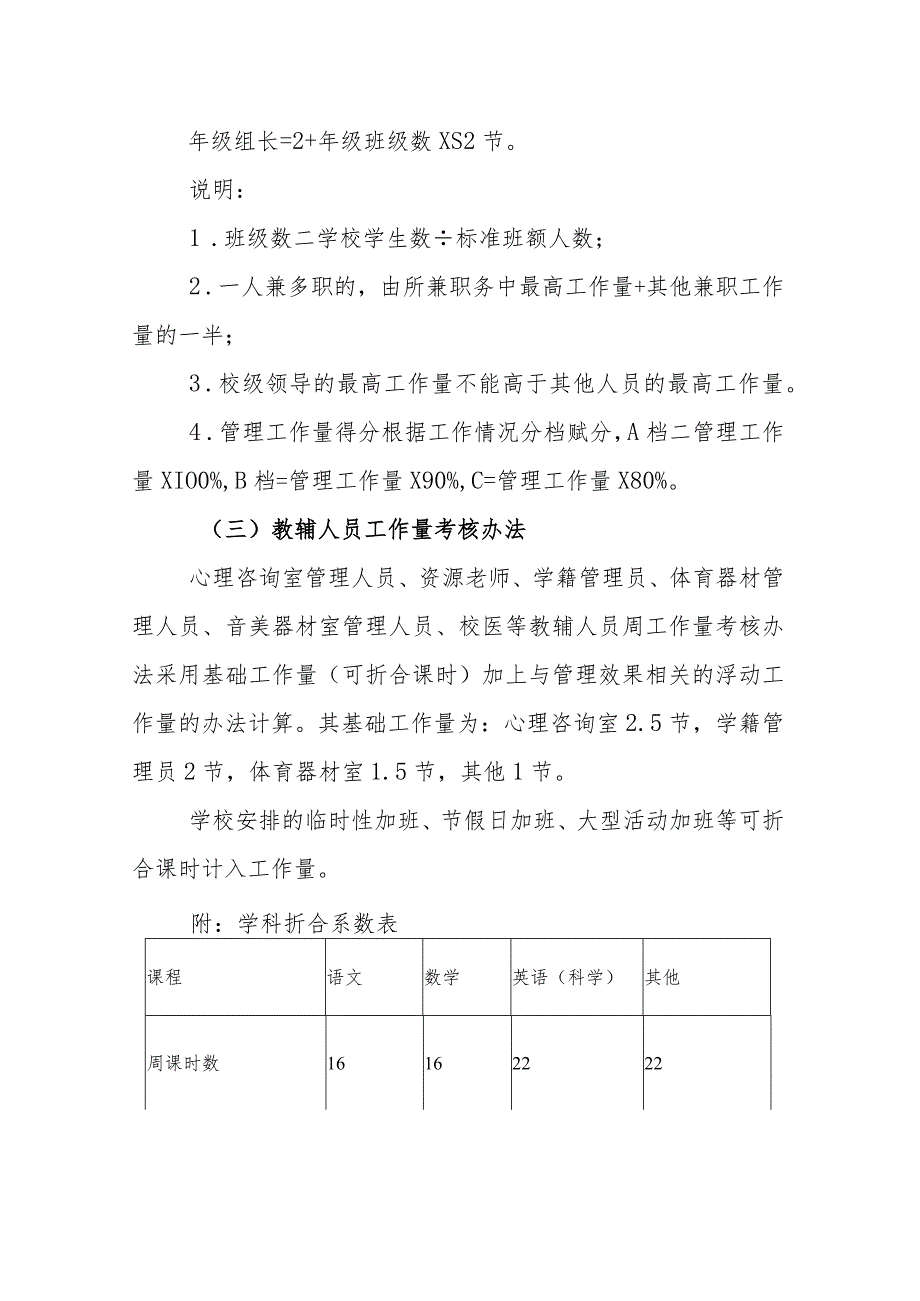 年级组长=2+年级班级数XS2节。
说明：
1.班级数二学校学生数÷标准班额人数；
2.一人兼多职的，由所兼职务中最高工作量+其他兼职工作
量的一半；
3.校级领导的最高工作量不能高于其他人员的最高工作量。
4.管理工作量得分根据工作情况分档赋分,A档二管理工作
量XIO0%,B档=管理工作量X90%,C=管理工作量X80%。
（三）教辅人员工作量考核办法
心理咨询室管理人员、资源老师、学籍管理员、体育器材管
理人员、音美器材室管理人员、校医等教辅人员周工作量考核办
法采用基础工作量（可折合课时）加上与管理效果相关的浮动工
作量的办法计算。其基础工作量为：心理咨询室2.5节，学籍管
理员2节，体育器材室1.5节，其他1节。
学校安排的临时性加班、节假日加班、大型活动加班等可折
合课时计入工作量。
附：学科折合系数表
课程 语文 数学 英语（科学） 其他
周课时数 16 16 22 22